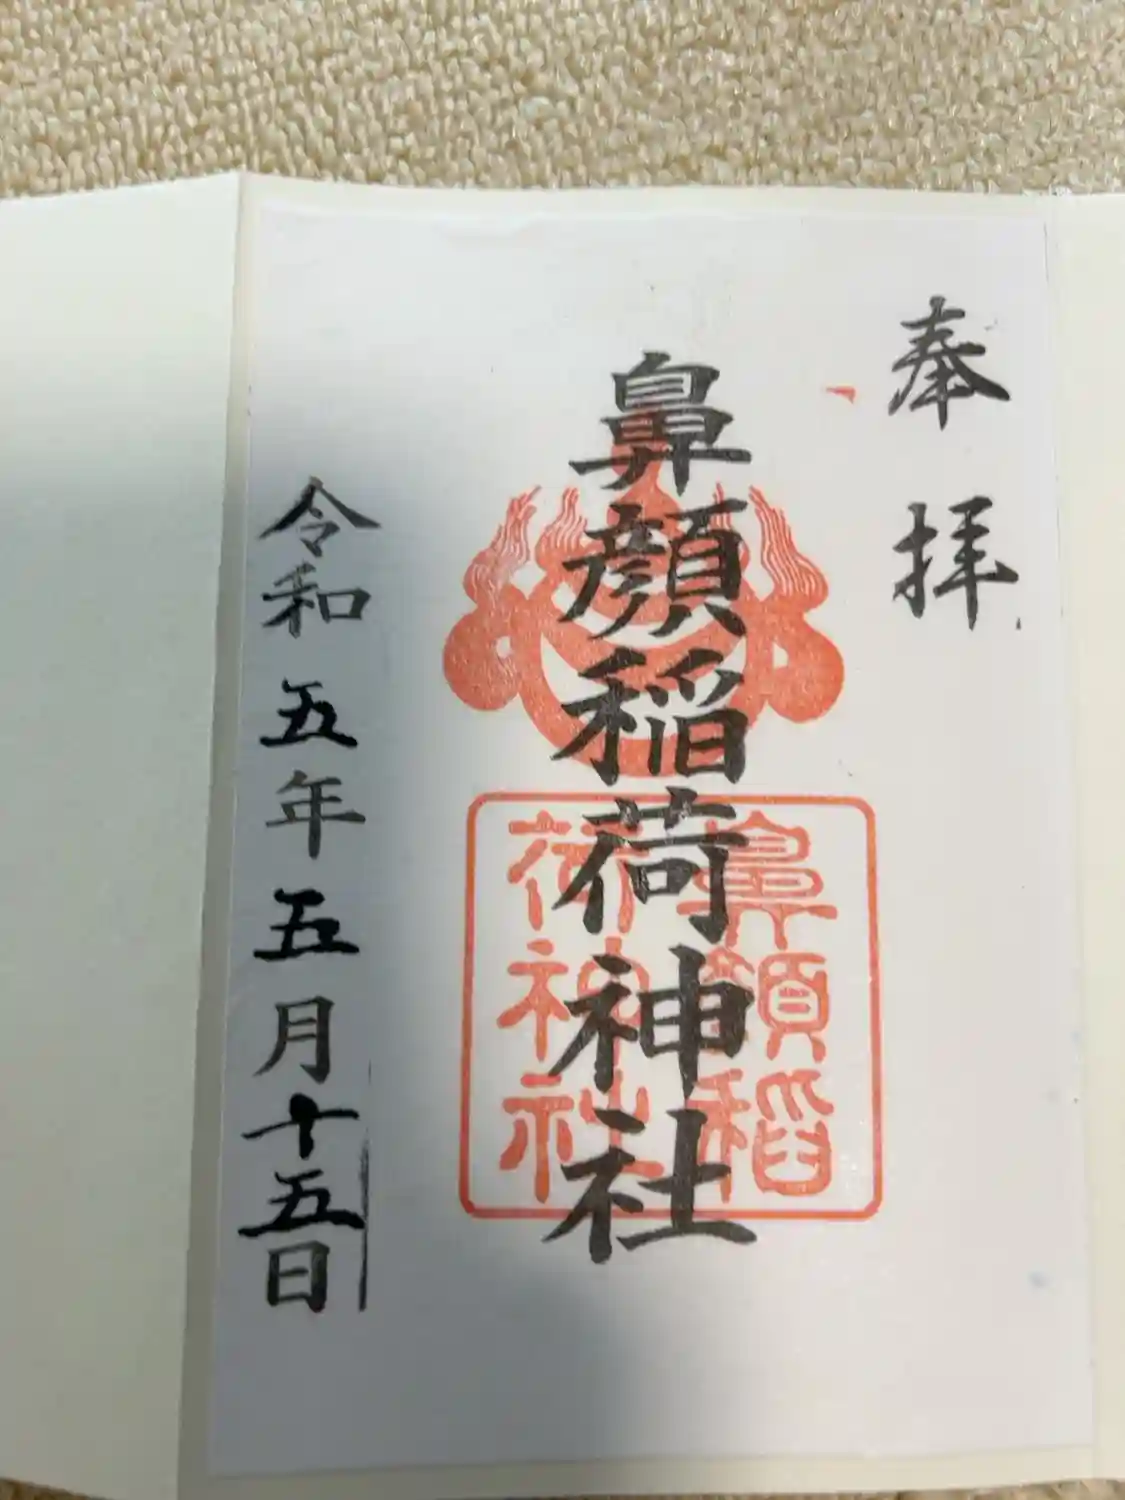 奉拝
鼻顔稲荷神社
鼻顔稲
荷神社
令和五年五月十五日